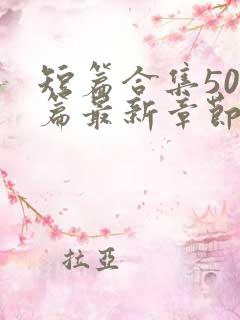 短篇合集50
篇最新章節
拉亞